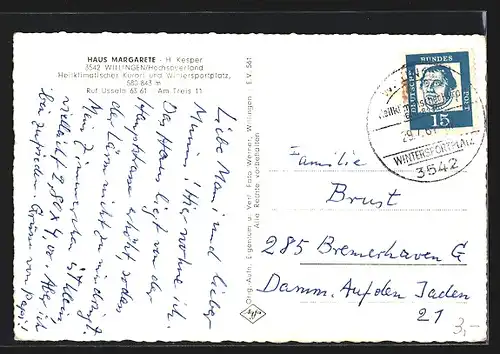 HAUS MARGARETE - H. Kesper
3542 WILLINGEN/Hochsauerland
Heilklimatischer Kurort und Wintersportplatz,
580-843 m
Ruf Usseln 63 61 Am Treis 11
Liebe Mami und lieber
Mummi! Hier wohne ich.
Das Haus liegt von der
Hauptstrasse erhöht, sodass
der Lärm nicht zu mir dringt.
Mein Zimmerchen ist klein
vielleicht 2,50 x 4,00. Aber ich
bin zufrieden. Grüsse von Papi!
Orig.-Aufn., Eigentum u. Verl. Foto-Werner, Willingen E.V. 561
Alle Rechte vorbehalten
DEUTSCHE
BUNDES
POST
15
29.7.61
WINTERSPORTPLATZ
3542
Familie
Brust
285 Bremerhaven G
Damm. Auf den Jaden
21
3,-